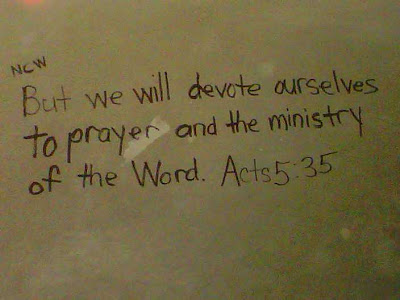 NCW
But we will devote ourselves
to prayer and the ministry
of the Word. Acts 5:35